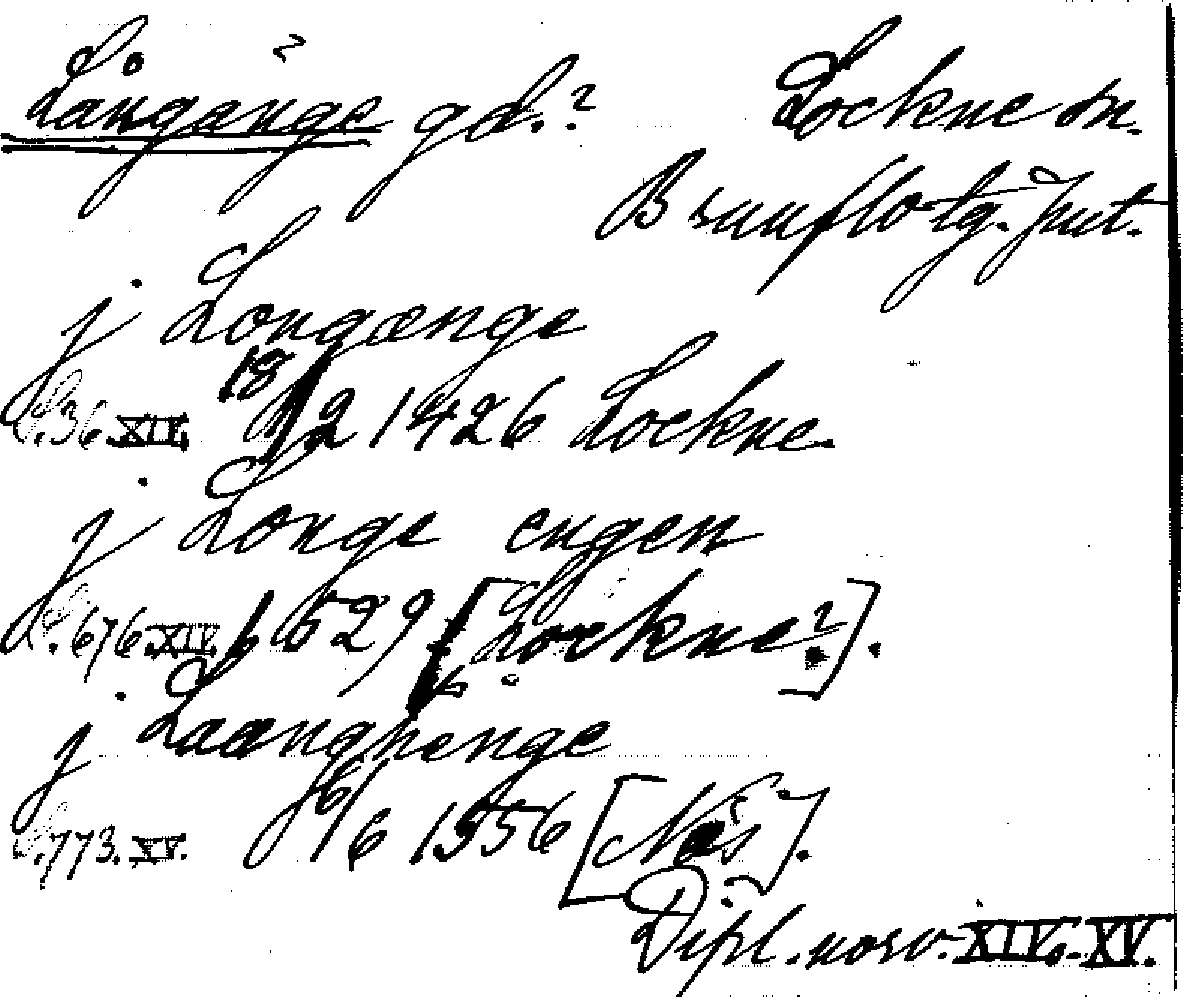 Långänge gd.? Lockne sn.
Brunflo tg. Jmt.
j Longænge
S. 36. XIV. 18/2 1426 Lockne.
j Longe engen
S. 676. XIV. 1529 [Lockne?].
j Laanghenge
S. 773. XV. 6/6 1556 [Näs].
Dipl. norv. XIV.-XV.